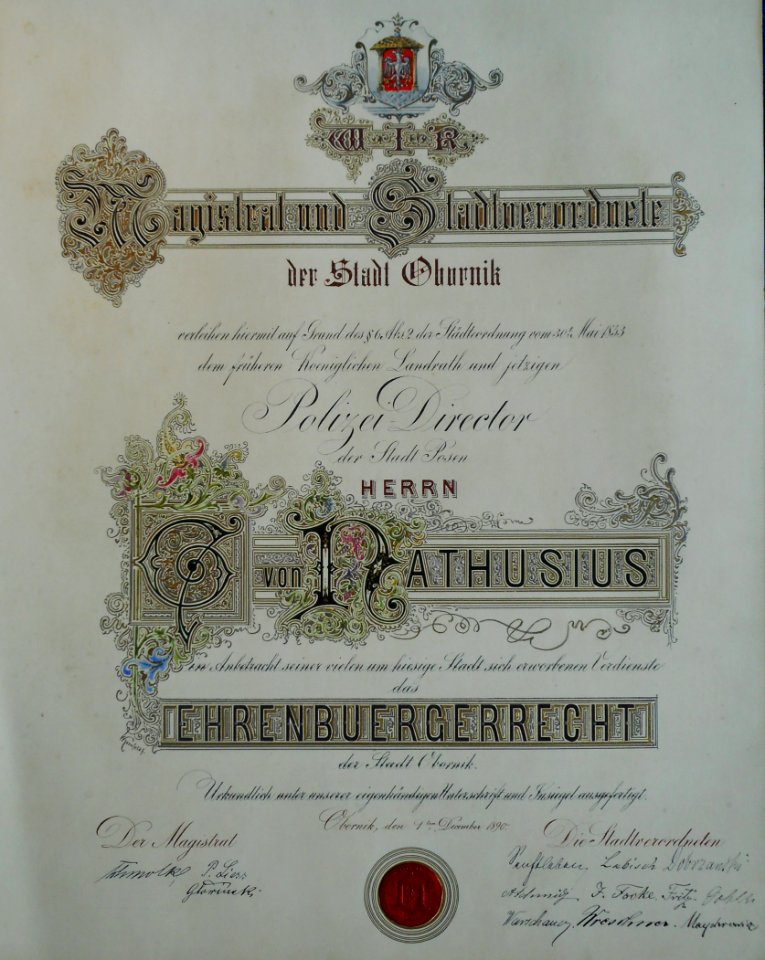 WIR
Magistrat und Stadtverordnete
der Stadt Obornik
verleihen hiermit auf Grund des § 6 Abs. 2 der Städteordnung vom 30t. Mai 1853
dem früheren Koeniglichen Landrath und jetzigen
Polizei-Director
der Stadt Posen
HERRN
von NATHUSIUS
in Anbetracht seiner vielen um hiesige Stadt sich erworbenen Verdienste
das
EHRENBUERGERRECHT
der Stadt Obornik.
Urkundlich unter unserer eigenhändigen Unterschrift und Insiegel ausgefertigt.
Obornik, den 1ten December 1890.
Der Magistrat
Die Stadtverordneten
Dobrzanski
Fritz
Warschauer